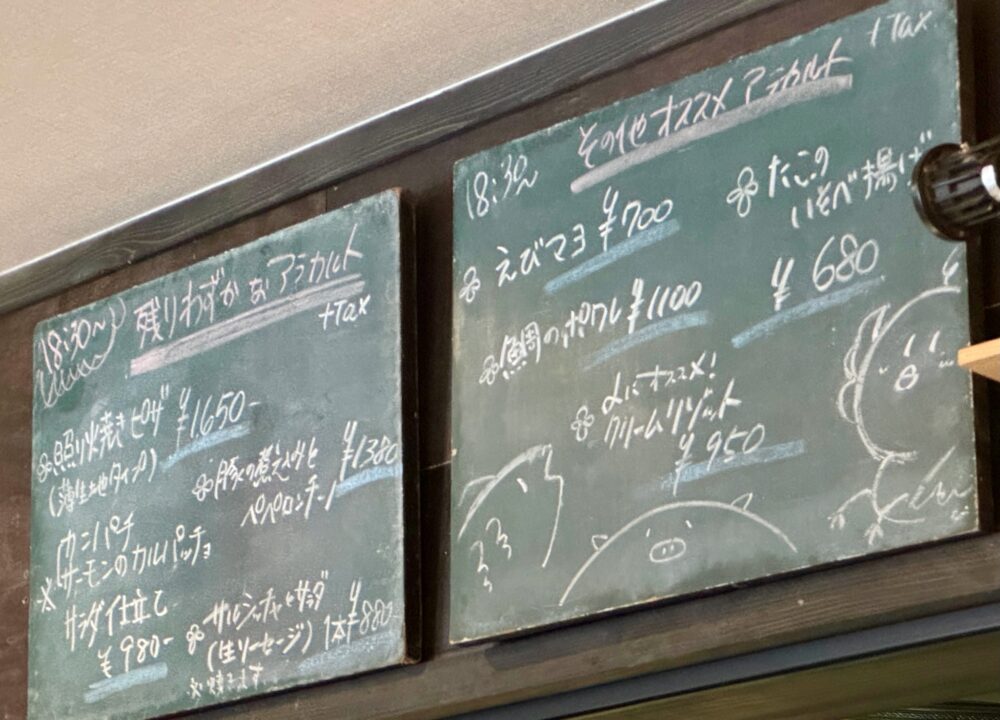 18:30〜
残りわずかなアラカルト
+Tax
照り焼きピザ ¥1650-
(薄生地タイプ)
豚の煮込みと
ペペロンチーノ
¥1380
カンパチ
サーモンのカルパッチョ
※
サラダ仕立て
¥980-
サルシッチャとサラダ
(生ソーセージ) 1本¥880
※焼きます
18:30〜
その他オススメアラカルト
+Tax
えびマヨ ¥700
たこの
いそべ揚げ
¥680
鯛のポワレ ¥1100
〆にオススメ!
クリームリゾット
¥950